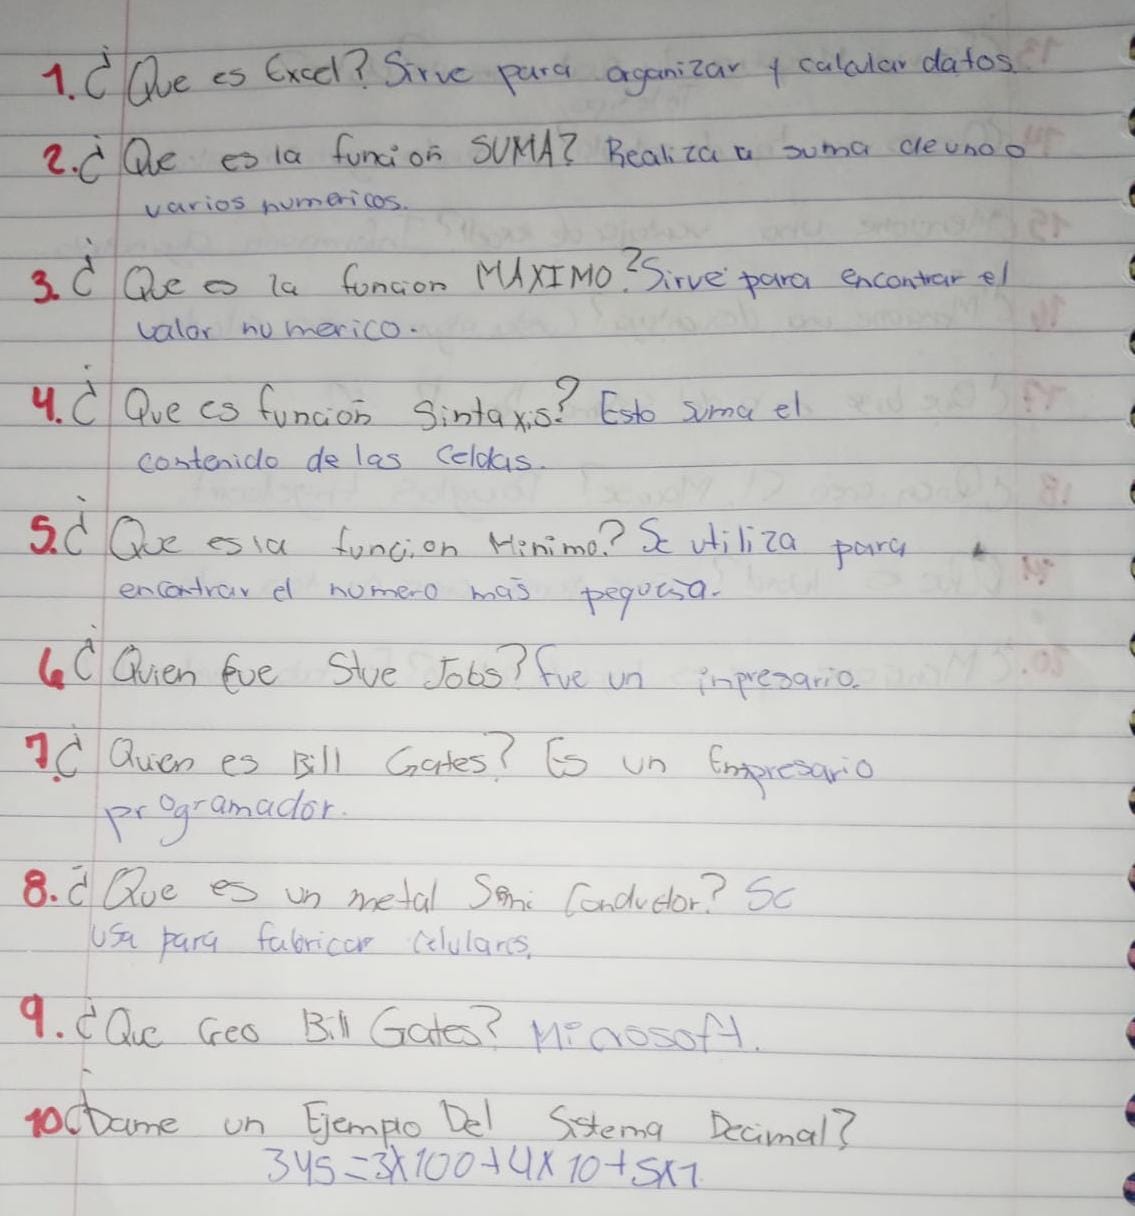 1. ¿Que es Excel? Sirve para organizar y calcular datos.
2. ¿Que es la funcion SUMA? Realiza a suma de uno o
varios numericos.
3. ¿Que es la funcion MAXIMO? Sirve para encontrar el
valor numerico.
4. ¿Que es función Sintaxis? Esto suma el
contenido de las celdas.
5. ¿Que es la funcion Minimo? Se utiliza para
encontrar el numero mas
6. ¿Quien fue Stve Jobs? fue un impresario.
7. ¿Quien es Bill Gates? Es un Empresario
programador.
8. ¿Que es un metal Semi Conductor? Se
usa para fabricar celulares.
9. ¿Que Creo Bill Gates? Microsoft.
10 ¿Dame un Ejemplo Del Sistema Decimal?
345=3x100+4x10+5x1